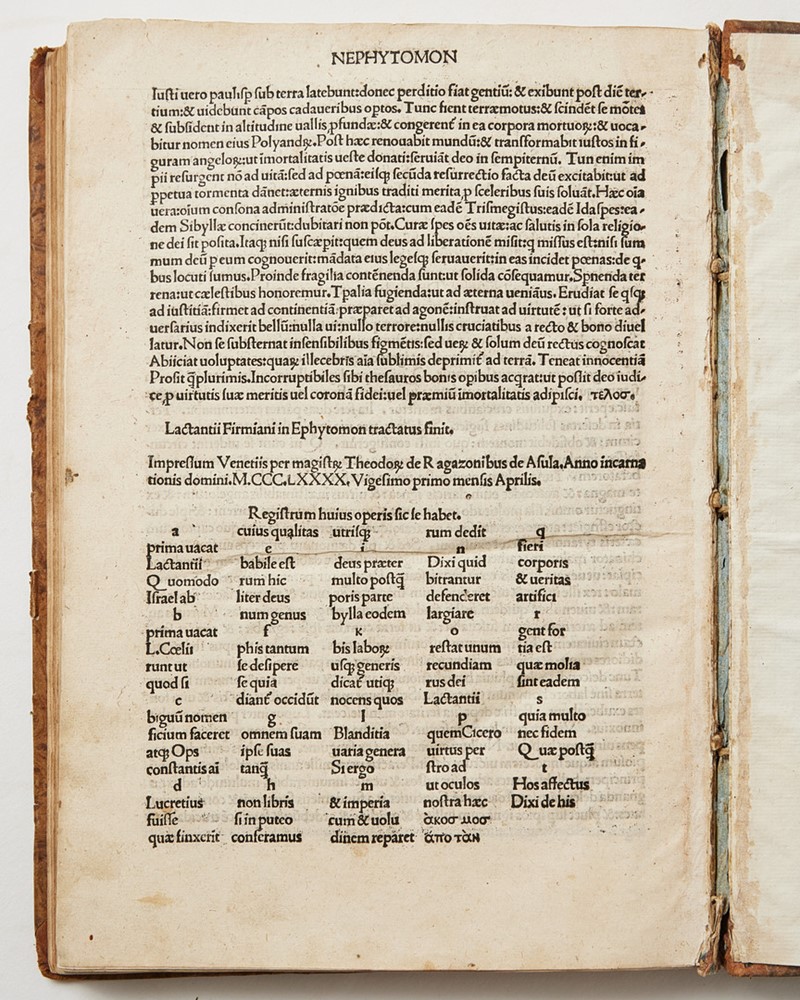 NEPHYTOMON
Iusti uero paulisp sub terra latebunt:donec perditio fiat gentiū: & exibunt post diē ter-
tium:& uidebunt cāpos cadaueribus optos. Tunc fient terræmotus:& scindēt se mōtes
& subsident in altitudine uallis pfundæ:& congerent̄ in ea corpora mortuoꝝ:& uoca-
bitur nomen eius Polyandꝝ.Post hæc renouabit mundū:& transformabit iustos in fi-
guram angeloꝝ:ut īmortalitatis ueste donati:seruiāt deo in sempiternū. Tun enim im
pii resurgent nō ad uitā:sed ad pœnā:eisqꝫ secūda resurrectio facta deū excitabit:ut ad
ppetua tormenta dānet:æternis ignibus traditi merita ꝓ sceleribus suis soluāt.Hæc oīa
uera:oīum consona administratōe prædicta:cum eadē Trismegistus:eadē Idaspes:ea-
dem Sibyllæ concinerūt:dubitari non pōt.Curæ spes oēs uitæ:ac salutis in sola religio-
ne dei sit posita.Itaqꝫ nisi suscæpit:quem deus ad liberationē misit:q missus est:nisi sum
mum deū p eum cognouerit:mādata eius legesqꝫ seruauerit:in eas incidet pœnas:de q-
bus locuti sumus.Proinde fragilia contēnenda sunt:ut solida cōsequamur.Spnenda ter
rena:ut cælestibus honoremur.Tpalia fugienda:ut ad æterna ueniāus. Erudiat se qsqꝫ
ad iustitiā:firmet ad continentiā:præparet ad agonē:instruat ad uirtutē : ut si forte ad-
uersarius indixerit bellū:nulla ui:nullo terrore:nullis cruciatibus a recto & bono diuel
latur.Non se substernat insensibilibus figmētis:sed ueꝝ & solum deū rectus cognoscat
Abiiciat uoluptates:quaꝝ illecebris aīa sublimis deprimit̄ ad terrā. Teneat innocentiā
Prosit q̄plurimis.Incorruptibiles sibi thesauros bonis opibus acqrat:ut possit deo iudi-
ce,p uirtutis suæ meritis uel coronā fidei:uel præmiū īmortalitatis adipisci. τέλοσ.
Lactantii Firmiani in Ephytomon tractatus finit.
Impressum Venetiis per magistꝝ Theodoꝝ de R agazonibus de Asula.Anno incarna
tionis domini.M.CCC.LXXXX.Vigesimo primo mensis Aprilis.
Registrum huius operis sic se habet.
a cuius qualitas utrisqꝫ rum dedit q
prima uacat e i n fieri
Lactantii babile est deus præter Dixi quid corporis
Q uomodo rum hic multo postq̄ bitrantur & ueritas
Israel ab liter deus poris parte defenderet artifici
b num genus bylla eodem largiare r
prima uacat f k o gent for
L.Cœlii phis tantum bis laboꝝ restat unum tia est
runt ut se desipere usqꝫ generis recundiam quæ molta
quod si se quia dicat̄ utiqꝫ rus dei sint eadem
c diant̄ occidūt nocens quos Lactantii s
biguū nomen g l p quia multo
ficium faceret omnem suam Blanditia quemCicero nec fidem
atqꝫ Ops ipse suas uaria genera uirtus per Q uæ postq̄
constantis aī tanq̄ Si ergo stro ad t
d h m ut oculos Hos affectus
Lucretius non libris & imperia nostra hæc Dixi de his
fuisse si in puteo cum & uolu ἄκοσ μοσ
quæ finxerit conferamus dinem reparet ἄπο τὰν